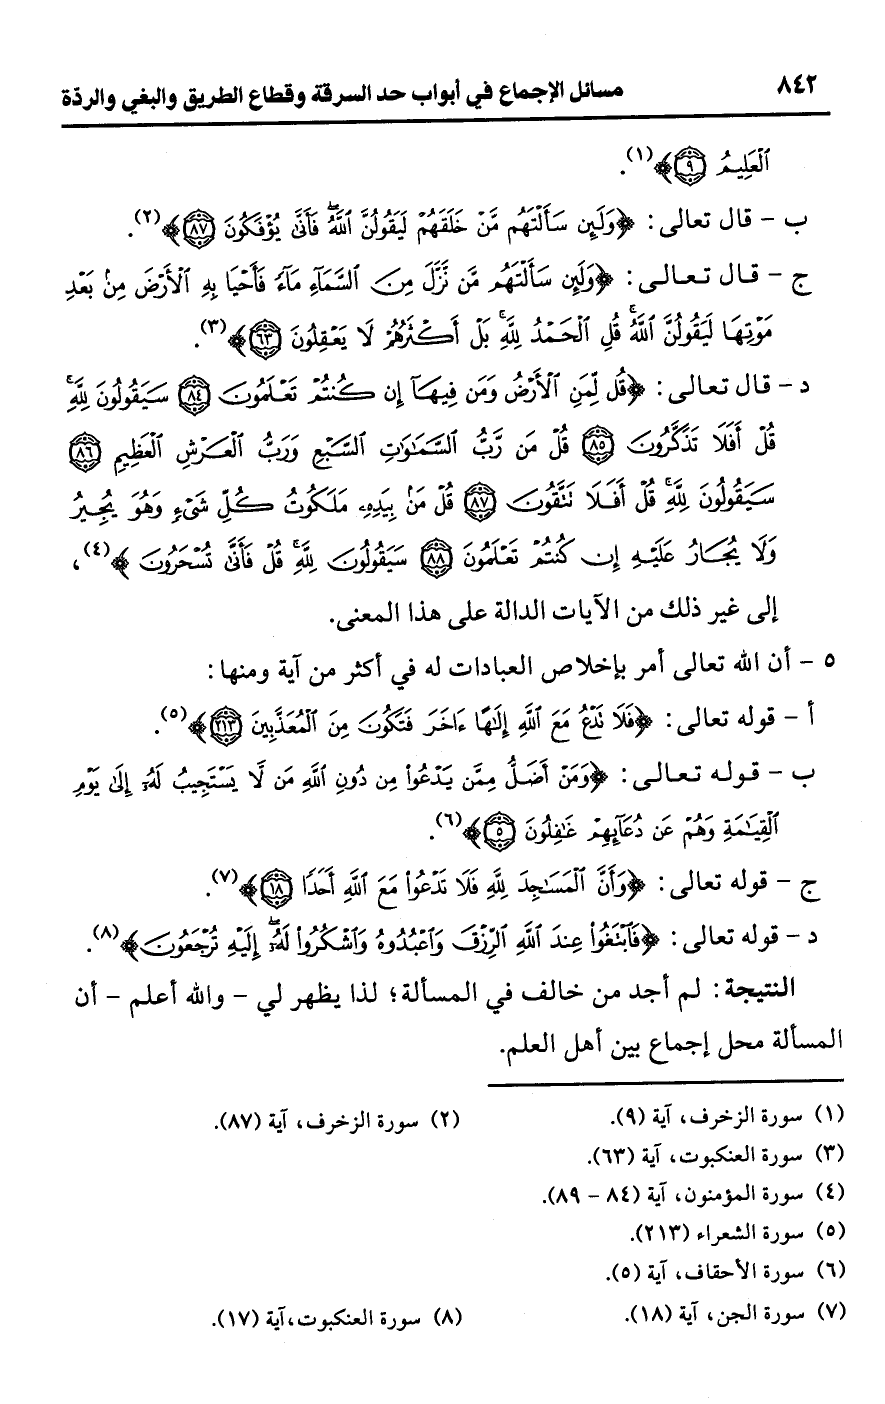 ٨٤٢ مسائل الإجماع في أبواب حد السرقة وقطاع الطريق والبغي والردّة
ٱلْعَلِيمُ ٩﴾(١).
ب - قال تعالى: ﴿وَلَئِن سَأَلْتَهُم مَّنْ خَلَقَهُمْ لَيَقُولُنَّ ٱللَّهُ ۖ فَأَنَّىٰ يُؤْفَكُونَ ٨٧﴾(٢).
ج - قال تعالى: ﴿وَلَئِن سَأَلْتَهُم مَّن نَّزَّلَ مِنَ ٱلسَّمَآءِ مَآءً فَأَحْيَا بِهِ ٱلْأَرْضَ مِنۢ بَعْدِ
مَوْتِهَا لَيَقُولُنَّ ٱللَّهُ ۚ قُلِ ٱلْحَمْدُ لِلَّهِ ۚ بَلْ أَكْثَرُهُمْ لَا يَعْقِلُونَ ٦٣﴾(٣).
د - قال تعالى: ﴿قُل لِّمَنِ ٱلْأَرْضُ وَمَن فِيهَآ إِن كُنتُمْ تَعْلَمُونَ ٨٤ سَيَقُولُونَ لِلَّهِ ۚ
قُلْ أَفَلَا تَذَكَّرُونَ ٨٥ قُلْ مَن رَّبُّ ٱلسَّمَٰوَٰتِ ٱلسَّبْعِ وَرَبُّ ٱلْعَرْشِ ٱلْعَظِيمِ ٨٦
سَيَقُولُونَ لِلَّهِ ۚ قُلْ أَفَلَا تَتَّقُونَ ٨٧ قُلْ مَنۢ بِيَدِهِۦ مَلَكُوتُ كُلِّ شَىْءٍ وَهُوَ يُجِيرُ
وَلَا يُجَارُ عَلَيْهِ إِن كُنتُمْ تَعْلَمُونَ ٨٨ سَيَقُولُونَ لِلَّهِ ۚ قُلْ فَأَنَّىٰ تُسْحَرُونَ﴾(٤)،
إلى غير ذلك من الآيات الدالة على هذا المعنى.
٥ - أن الله تعالى أمر بإخلاص العبادات له في أكثر من آية ومنها:
أ - قوله تعالى: ﴿فَلَا تَدْعُ مَعَ ٱللَّهِ إِلَٰهًا ءَاخَرَ فَتَكُونَ مِنَ ٱلْمُعَذَّبِينَ ٢١٣﴾(٥).
ب - قوله تعالى: ﴿وَمَنْ أَضَلُّ مِمَّن يَدْعُوا۟ مِن دُونِ ٱللَّهِ مَن لَّا يَسْتَجِيبُ لَهُۥٓ إِلَىٰ يَوْمِ
ٱلْقِيَٰمَةِ وَهُمْ عَن دُعَآئِهِمْ غَٰفِلُونَ ٥﴾(٦).
ج - قوله تعالى: ﴿وَأَنَّ ٱلْمَسَٰجِدَ لِلَّهِ فَلَا تَدْعُوا۟ مَعَ ٱللَّهِ أَحَدًا ١٨﴾(٧).
د - قوله تعالى: ﴿فَٱبْتَغُوا۟ عِندَ ٱللَّهِ ٱلرِّزْقَ وَٱعْبُدُوهُ وَٱشْكُرُوا۟ لَهُۥٓ ۖ إِلَيْهِ تُرْجَعُونَ﴾(٨).
النتيجة: لم أجد من خالف في المسألة؛ لذا يظهر لي - والله أعلم - أن
المسألة محل إجماع بين أهل العلم.
(١) سورة الزخرف، آية (٩). (٢) سورة الزخرف، آية (٨٧).
(٣) سورة العنكبوت، آية (٦٣).
(٤) سورة المؤمنون، آية (٨٤ - ٨٩).
(٥) سورة الشعراء (٢١٣).
(٦) سورة الأحقاف، آية (٥).
(٧) سورة الجن، آية (١٨). (٨) سورة العنكبوت،آية (١٧).